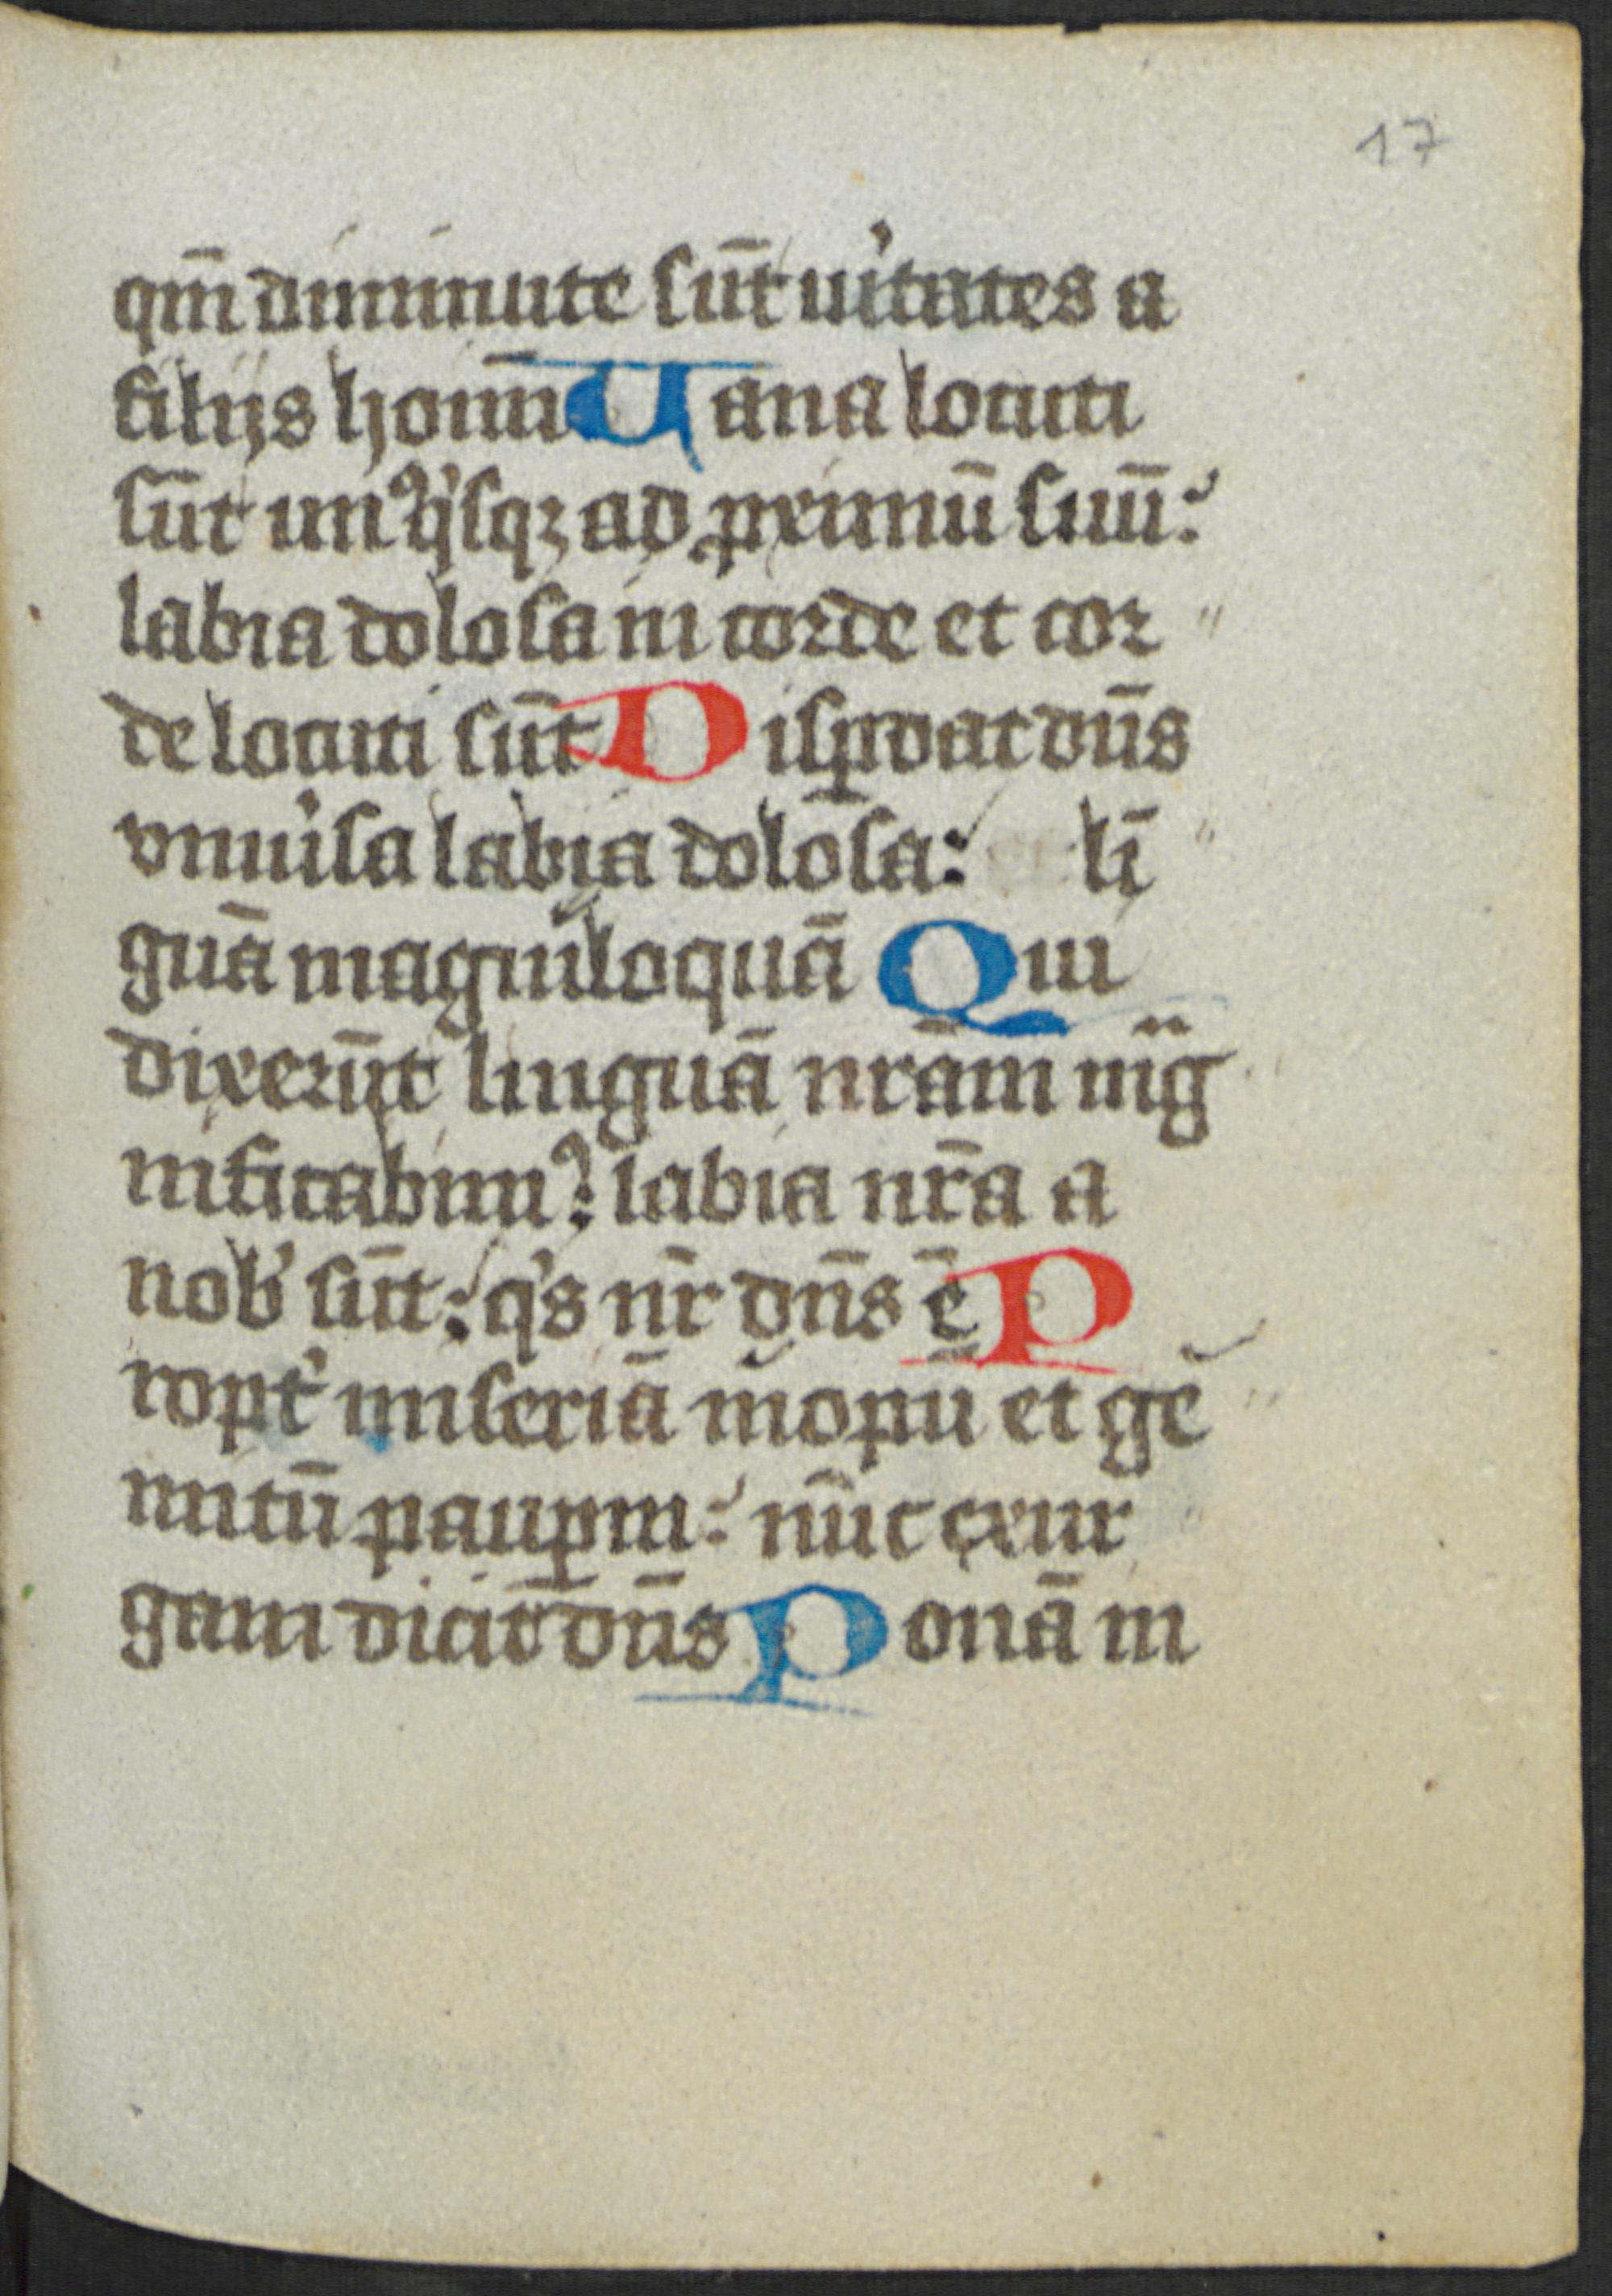 17
qm̄ diminute sūt uĩtates a
filijs hoim̄ Uana locuti
sūt unꝰqͥsqꝫ ad ꝓximū suū:
labia dolosa in corde et cor〃
de locuti sūt Disꝑdat dn̄s
vniuˀsa labia dolosa: li̅〃
guā magniloquā Qui
dixerūt linguā nrām mīg
nificabimꝰ: labia nr̄a a
nobˀ sūt: qͥs nr̄ dn̄s ē P
roptˀ miseriā inopū et gē〃
mitū pauꝑm: nūc exur
gam dicit dn̄s Ponā in